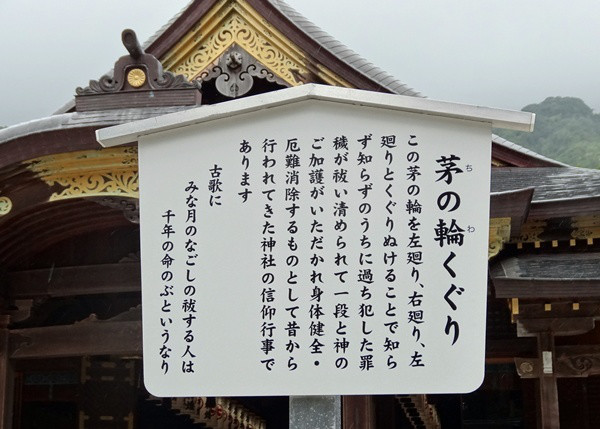 茅の輪くぐり
ち わ
この茅の輪を左廻り、右廻り、左
廻りとくぐりぬけることで知ら
ず知らずのうちに過ち犯した罪
穢が祓い清められて一段と神の
ご加護がいただかれ身体健全・
厄難消除するものとして昔から
行われてきた神社の信仰行事で
あります
古歌に
みな月のなごしの祓する人は
千年の命のぶというなり